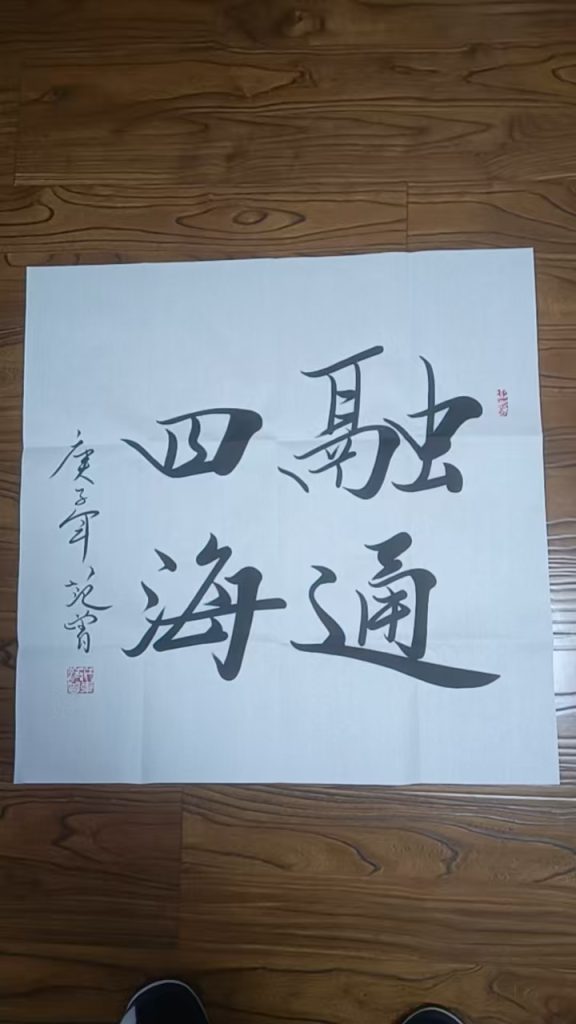 融通
四海
庚子年 范曾